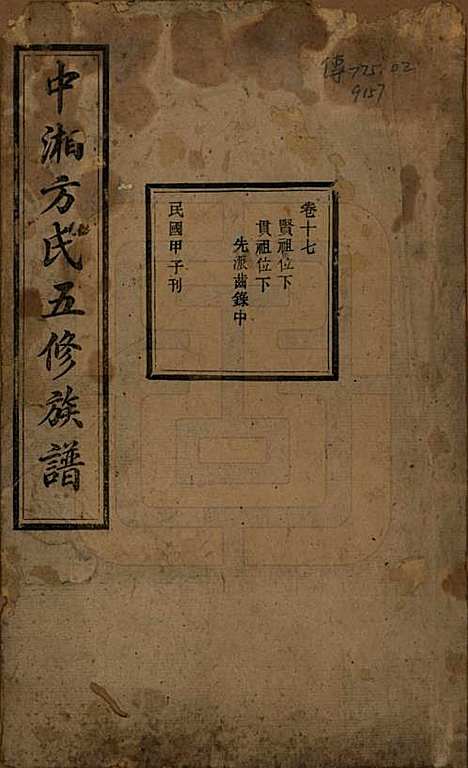 傳 725.02
9157
卷十七
賢祖位下
貫祖位下
先派齒錄中
民國甲子刊
中湘方氏五修族譜